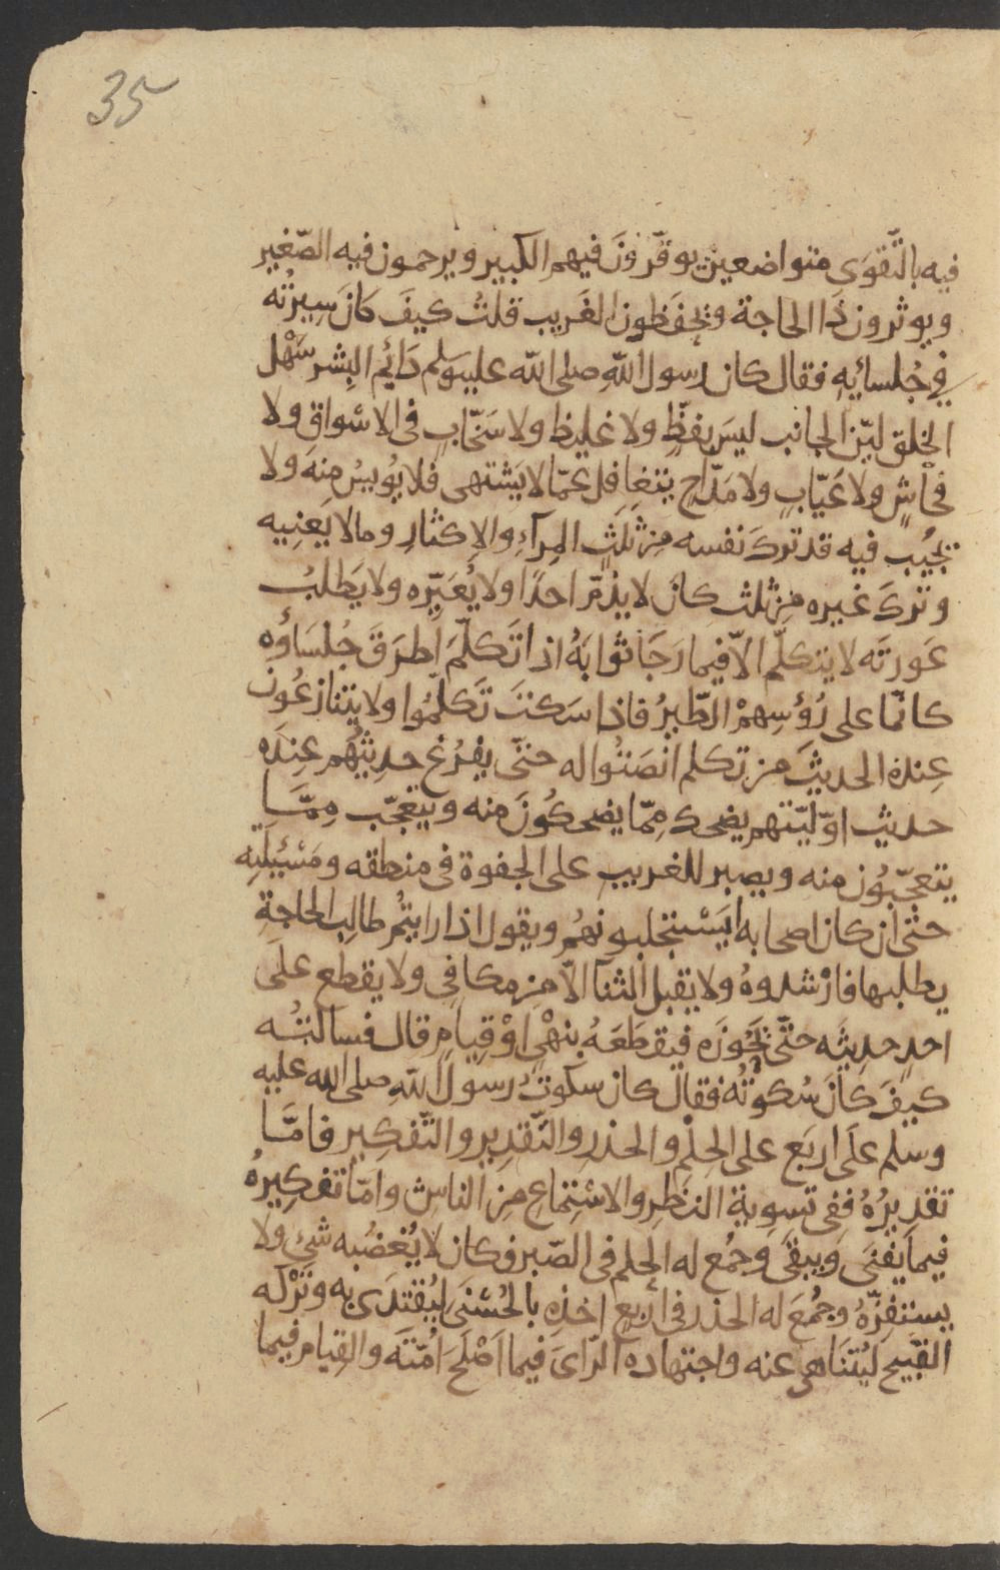 35
فيه بالتَّقوَى متواضعين يوقّرونَ فيهم الكبير ويرحمون فيه الصّغير
ويوثرون ذَا الحاجة ويحفَظون الغَريب قلتُ كيفَ كانَ سِيرتُه
في جُلسائِهِ فقال كان رسول اللّهِ صلى اللّه عليه وسَلم دَائِم البِشر سَهْل
الخلق ليّن الجانب ليسَ بفَظٍّ ولا غليظ ولا سَخّابٍ فى الاسْواق ولا
فحّاشٍ ولا عَيّابٍ ولا مَدّاحٍ يتغافل عمّا لا يَشتهى فلا يُوييسُ مِنهَ ولا
يجُيب فيه قد تركَ نفسه مِن ثلثٍ المِرآءِ والاِكثارِ ومالا يَعنِيه
وتركَ غيره مِن ثلث كان لا يذمّ احدًا ولا يُعَيّرِه ولا يَطلبُ
عَورتَه لا يتكلّم الاّ فيما رَجَا ثوابَهُ اذا تَكلّمَ اَطرَقَ جُلسَاؤُه
كانّما على رُؤُسِهمْ الطّيرُ فاذا سَكتَ تَكلّمُوا ولا يتنازعُون
عِندهَ الحديثَ من تكلم انصَتُوا له حتّى يفرُغ حديثُهُم عِندَه
حديث اوّليّتهم يضحك مِمّا يضحكُونَ منه ويتعجّب مِمَّا
يتعجّبُون منه ويصبر للغريب على الجفوة فى منطقه ومَسْئلَتِه
حتّى ان كان اصحابه ليَسْتجلبونهُم ويقول اذا رايتُم طالِب الحاجةِ
يطلبها فارْشدوهُ ولا يَقبل الثنآ الاّ مِن مكافِى ولا يقطع علَى
احدٍ حديثَه حتَّى يَجُوزَه فيقطَعَهُ بنهْىٍ اوْ قيامٍ قال فسالتُه
كيفَ كانَ سُكوتُه فقال كان سكوتُ رسول اللّهِ صلى الله عليه
وسلم علَى اربَع على الحِلْمِ والحذر والتّقدِير والتّفكِير فامّا
تقدِيرُهُ ففى تسوية النظَر والاسْتِماعِ مِن الناس وامّا تفكيرهُ
فيما يَفنَى وَيبقَى وَجمُع له الحلم فى الصّبر فكان لا يُغضُبه شئ ولا
يستفزّهُ وجُمعَ له الحذر في اربَعٍ اخذهِ بالحُسْنَى ليُقتدَى به وتَرْكه
القَبيح ليُتنَاهى عنه واجتهاده الرّاىَ فيما اَصْلَحَ امّتَه والقيام فيما